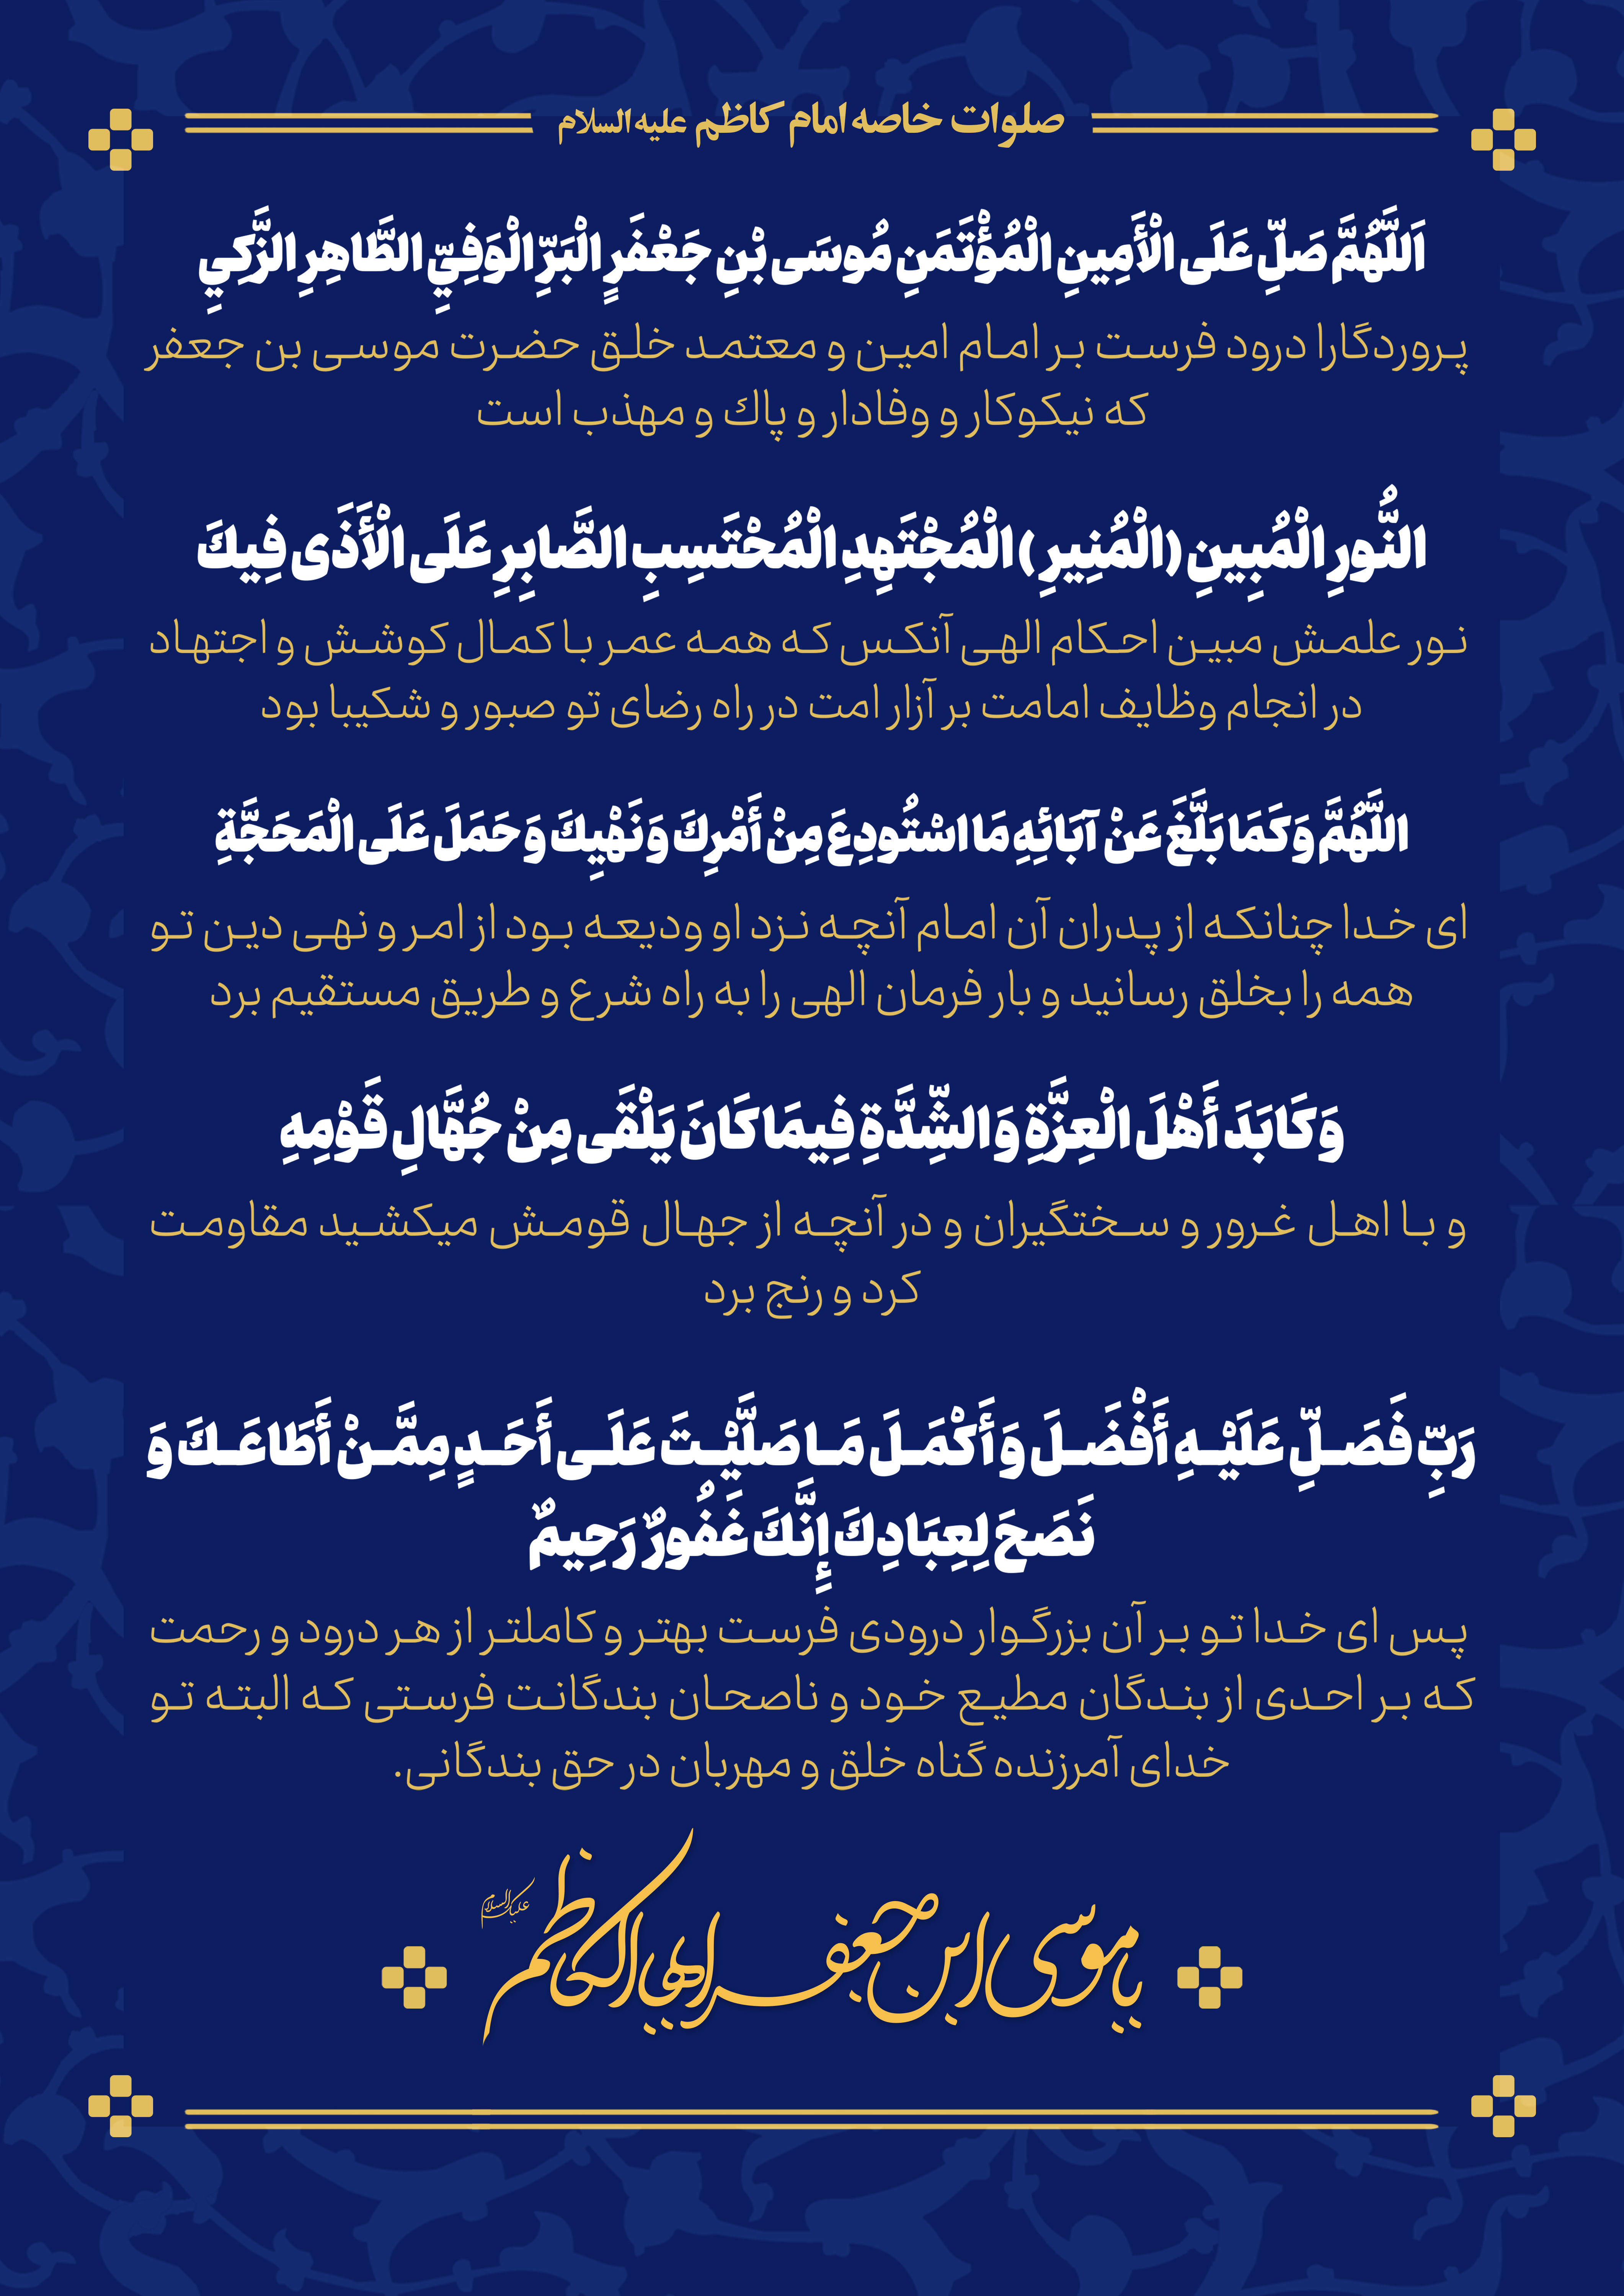 صلوات خاصه امام کاظم علیه السلام
اَللَّهُمَّ صَلِّ عَلَى الْأَمِينِ الْمُؤْتَمَنِ مُوسَى بْنِ جَعْفَرٍ الْبَرِّ الْوَفِيِّ الطَّاهِرِ الزَّكِيِ
پروردگارا درود فرست بر امام امین و معتمد خلق حضرت موسی بن جعفر
که نیکوکار و وفادار و پاك و مهذب است
النُّورِ الْمُبِينِ (الْمُنِيرِ) الْمُجْتَهِدِ الْمُحْتَسِبِ الصَّابِرِ عَلَى الْأَذَى فِيكَ
نور علمش مبین احکام الهی آنکس که همه عمر با کمال کوشش و اجتهاد
در انجام وظایف امامت بر آزار امت در راه رضای تو صبور و شکیبا بود
اللَّهُمَّ وَكَمَا بَلَّغَ عَنْ آبَائِهِ مَا اسْتُودِعَ مِنْ أَمْرِكَ وَنَهْيِكَ وَحَمَلَ عَلَى الْمَحَجَّةِ
ای خدا چنانکه از پدران آن امام آنچه نزد او ودیعه بود از امر و نهی دین تو
همه را بخلق رسانید و بار فرمان الهی را به راه شرع و طریق مستقیم برد
وَكَابَدَ أَهْلَ الْعِزَّةِ وَالشِّدَّةِ فِيمَا كَانَ يَلْقَى مِنْ جُهَّالِ قَوْمِهِ
و با اهل غرور و سختگیران و در آنچه از جهال قومش میکشید مقاومت
کرد و رنج برد
رَبِّ فَصَلِّ عَلَيْهِ أَفْضَلَ وَأَكْمَلَ مَا صَلَّيْتَ عَلَى أَحَدٍ مِمَّنْ أَطَاعَكَ وَ
نَصَحَ لِعِبَادِكَ إِنَّكَ غَفُورٌ رَحِيمٌ
پس ای خدا تو بر آن بزرگوار درودی فرست بهتر و کاملتر از هر درود و رحمت
که بر احدی از بندگان مطیع خود و ناصحان بندگانت فرستی که البته تو
خدای آمرزنده گناه خلق و مهربان در حق بندگانی.
یا موسی ابن جعفر ایها الکاظم علیک السلام